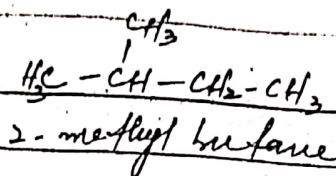 CH3
H3C - CH - CH2 - CH3
2 - methyl butane